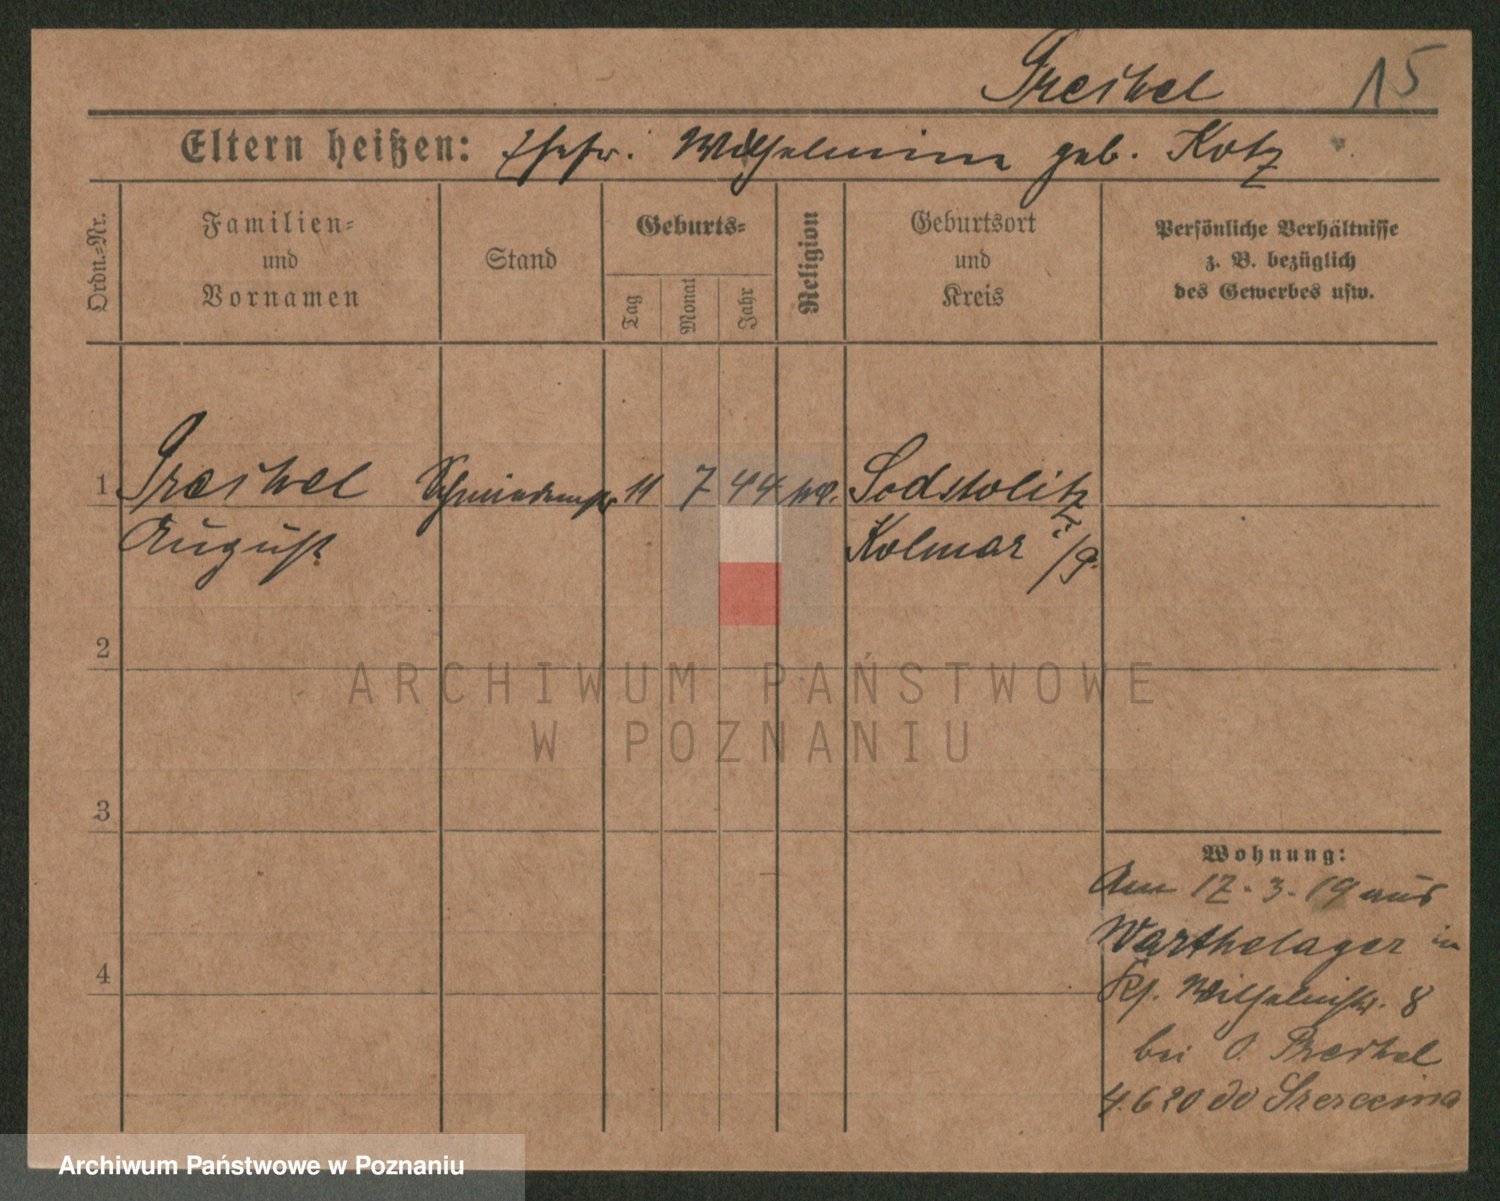 Preikel 15
Eltern heißen: Ehefr. Wilhelmine geb. Kotz
Ordn.-Nr.
Familien-
und
Vornamen
Stand
Geburts-
Tag
Monat
Jahr
Religion
Geburtsort
und
Kreis
Persönliche Verhältnisse
z. B. bezüglich
des Gewerbes usw.
1 11 7 44
August
Kolmar i/P.
2
3
4
Wohnung:
Am 17.3.19 aus
Warthelager in
Wilhelmstr. 8
bei O.
4.6 20 do
ARCHIWUM PAŃSTWOWE
W POZNANIU
Archiwum Państwowe w Poznaniu